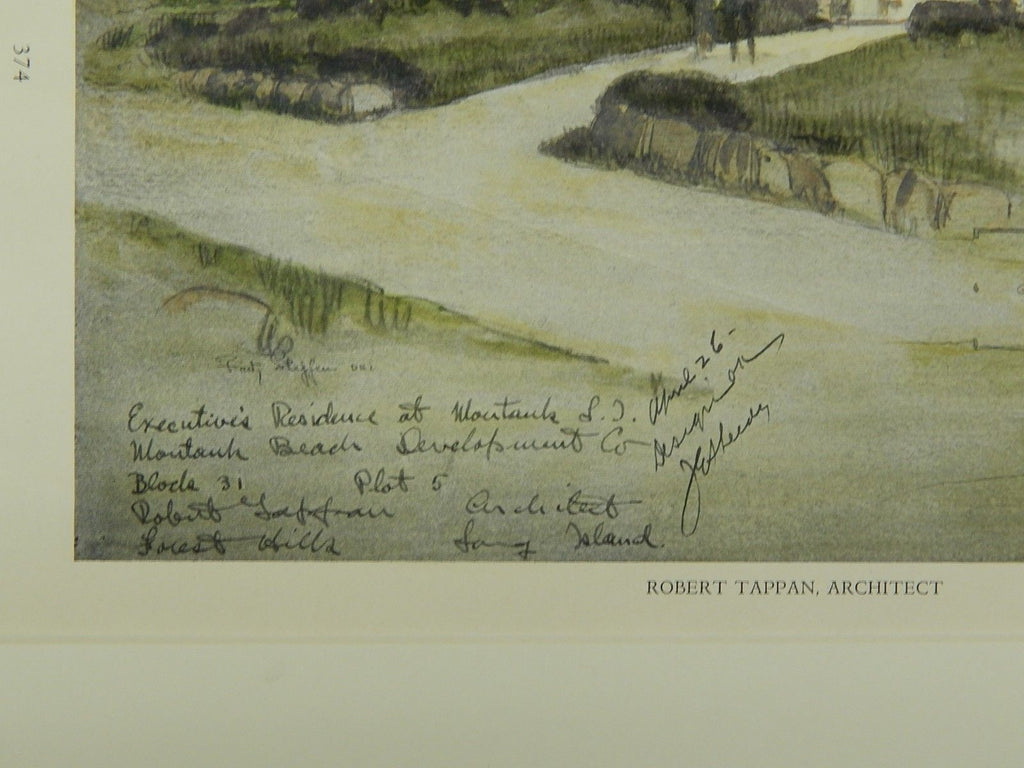 374
Executive's Residence at Montauk L.I.
Montauk Beach Development Co
Block 31 Plot 5
Robert Tappan Architect
Forest Hills Long Island.
April 26-
ROBERT TAPPAN, ARCHITECT